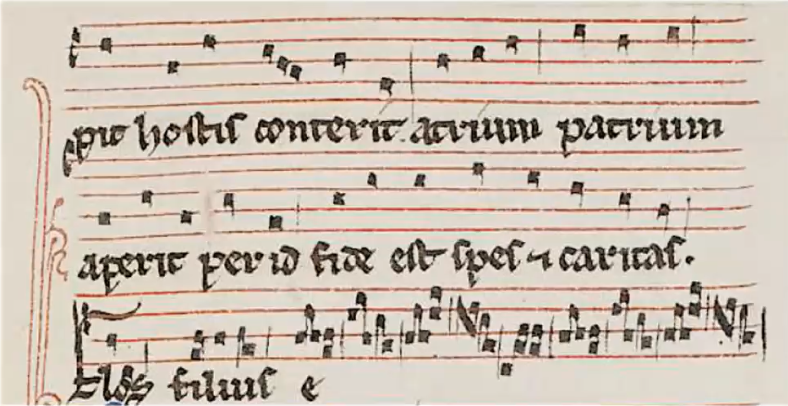 pit hostis conterit. atrium patrium
aperit per id fide est spes ⁊ caritas.
filius e